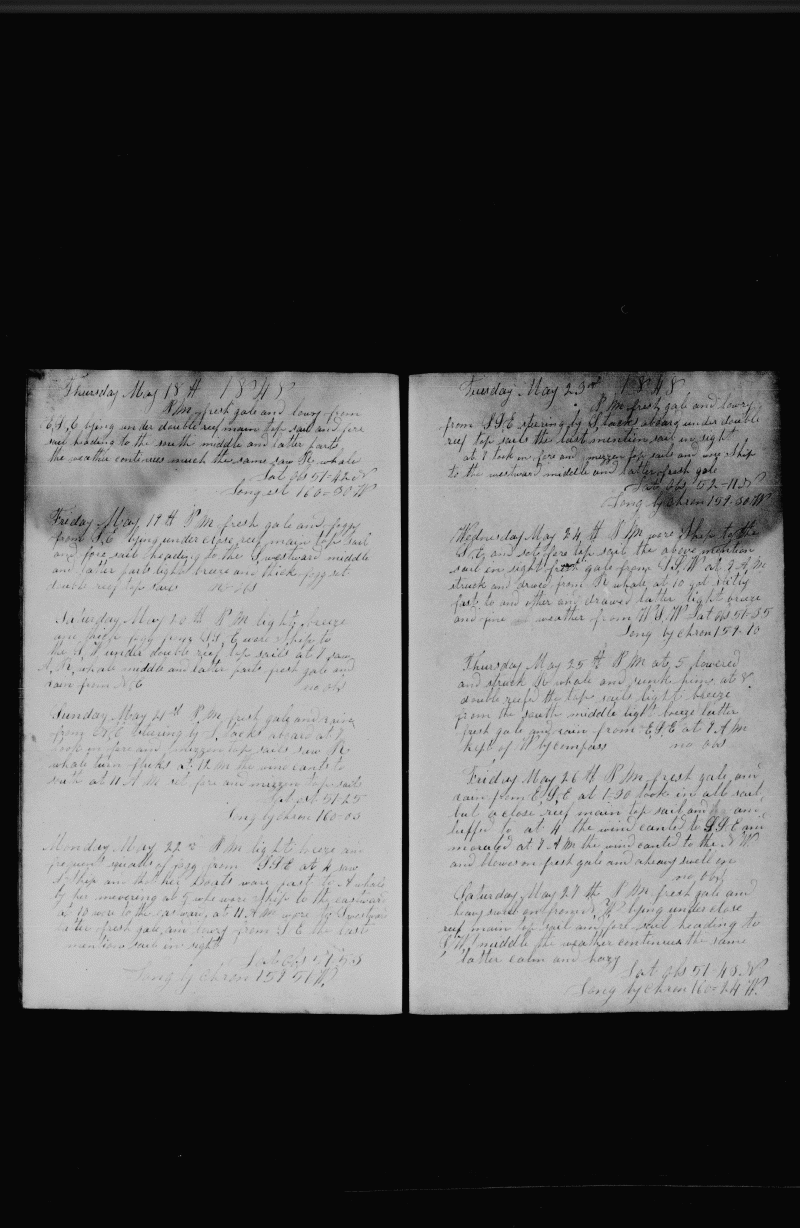 Thursday May 18th 1848
P M fresh gale and lowry from
E,S,E lying under double reef main top sail and fore
sail heading to the south middle and latter parts
the weather continues much the same saw R whale
Lat obs 51-42 N
Long est 160-30 W
Friday May 19th P M fresh gale and foggy
from S,E lying under close reef main top sail
and fore sail heading to the S westward middle
and latter parts light breeze and thick fogg set
double reef top sails no obs
Saturday May 20th P M light breeze
and thick fogg from S,S,E wore ship to
the under double reef top sails at 7 saw
A R, whale middle and latter parts fresh gale and
rain from N,E no obs
Sunday May 21st P M fresh gale and rain
from N,E stearing by S, tacks aboard at 7
took in fore and mizzen top sails saw R
whale turn flucks at 12 M the wind cants to
south at 11 A M set fore and mizzen top sails
Lat est 51-25
Long by chron 160-03
Monday May 22nd P M light breeze and
frequent squalls of fogg from S,S,E at 4 saw
A ship and that her boats wars fast to A whale
by her at 9 wore ship to the eastward
at 10 wore to the eastward, at 11 A M wore to S westward
latter fresh gale and lowry from S E the last
mention sail in sight
Lat obs 51-53
Long by chron 159 51 W
Tuesday May 23rd 1848
P M fresh gale and lowry
from S,S,E stearing by S, tacks aboard under double
reef top sails the last mention sail in sight
at 8 took in fore and mizzen top sails and wore ship
to the westward middle and latter fresh gale
Lat obs 52-11 N
Long by chron 159-30 W
Wednesday May 24th P M wore ship to the
S,E, and sot fore top sail the above mention
sail in sight fresh gale from S,S,W at 9 A M
struck and drawed from R whale, at 10 got
fast to and other and drawed latter light breeze
and fine weather from W S,W Lat obs 51-55
Long by chron 159-10
Thursday May 25th P M at 5 lowered
and struck R whale and sunk him, at 8
double reefd the top sails light breeze
from the south middle light breeze latter
fresh gale and rain from E,S,E at 7 A M
kept of W by compass no obs
Friday May 26th P M fresh gale and
rain from E,S,E at 1-30 took in all sail,
but a close reef main top sail and
luffed to at 4 the wind canted to S.S.E and
morated at 7 A M the wind canted to the S W
and blows on fresh gale and a heavy swell on
no obs
Saturday May 27th P M fresh gale and
heavy swell on from S, W lying under close
reef main top sail and fore sail heading to
S W middle the weather continues the same
latter calm and hazy
Lat obs 51-43 N
Long by chron 160-24 W